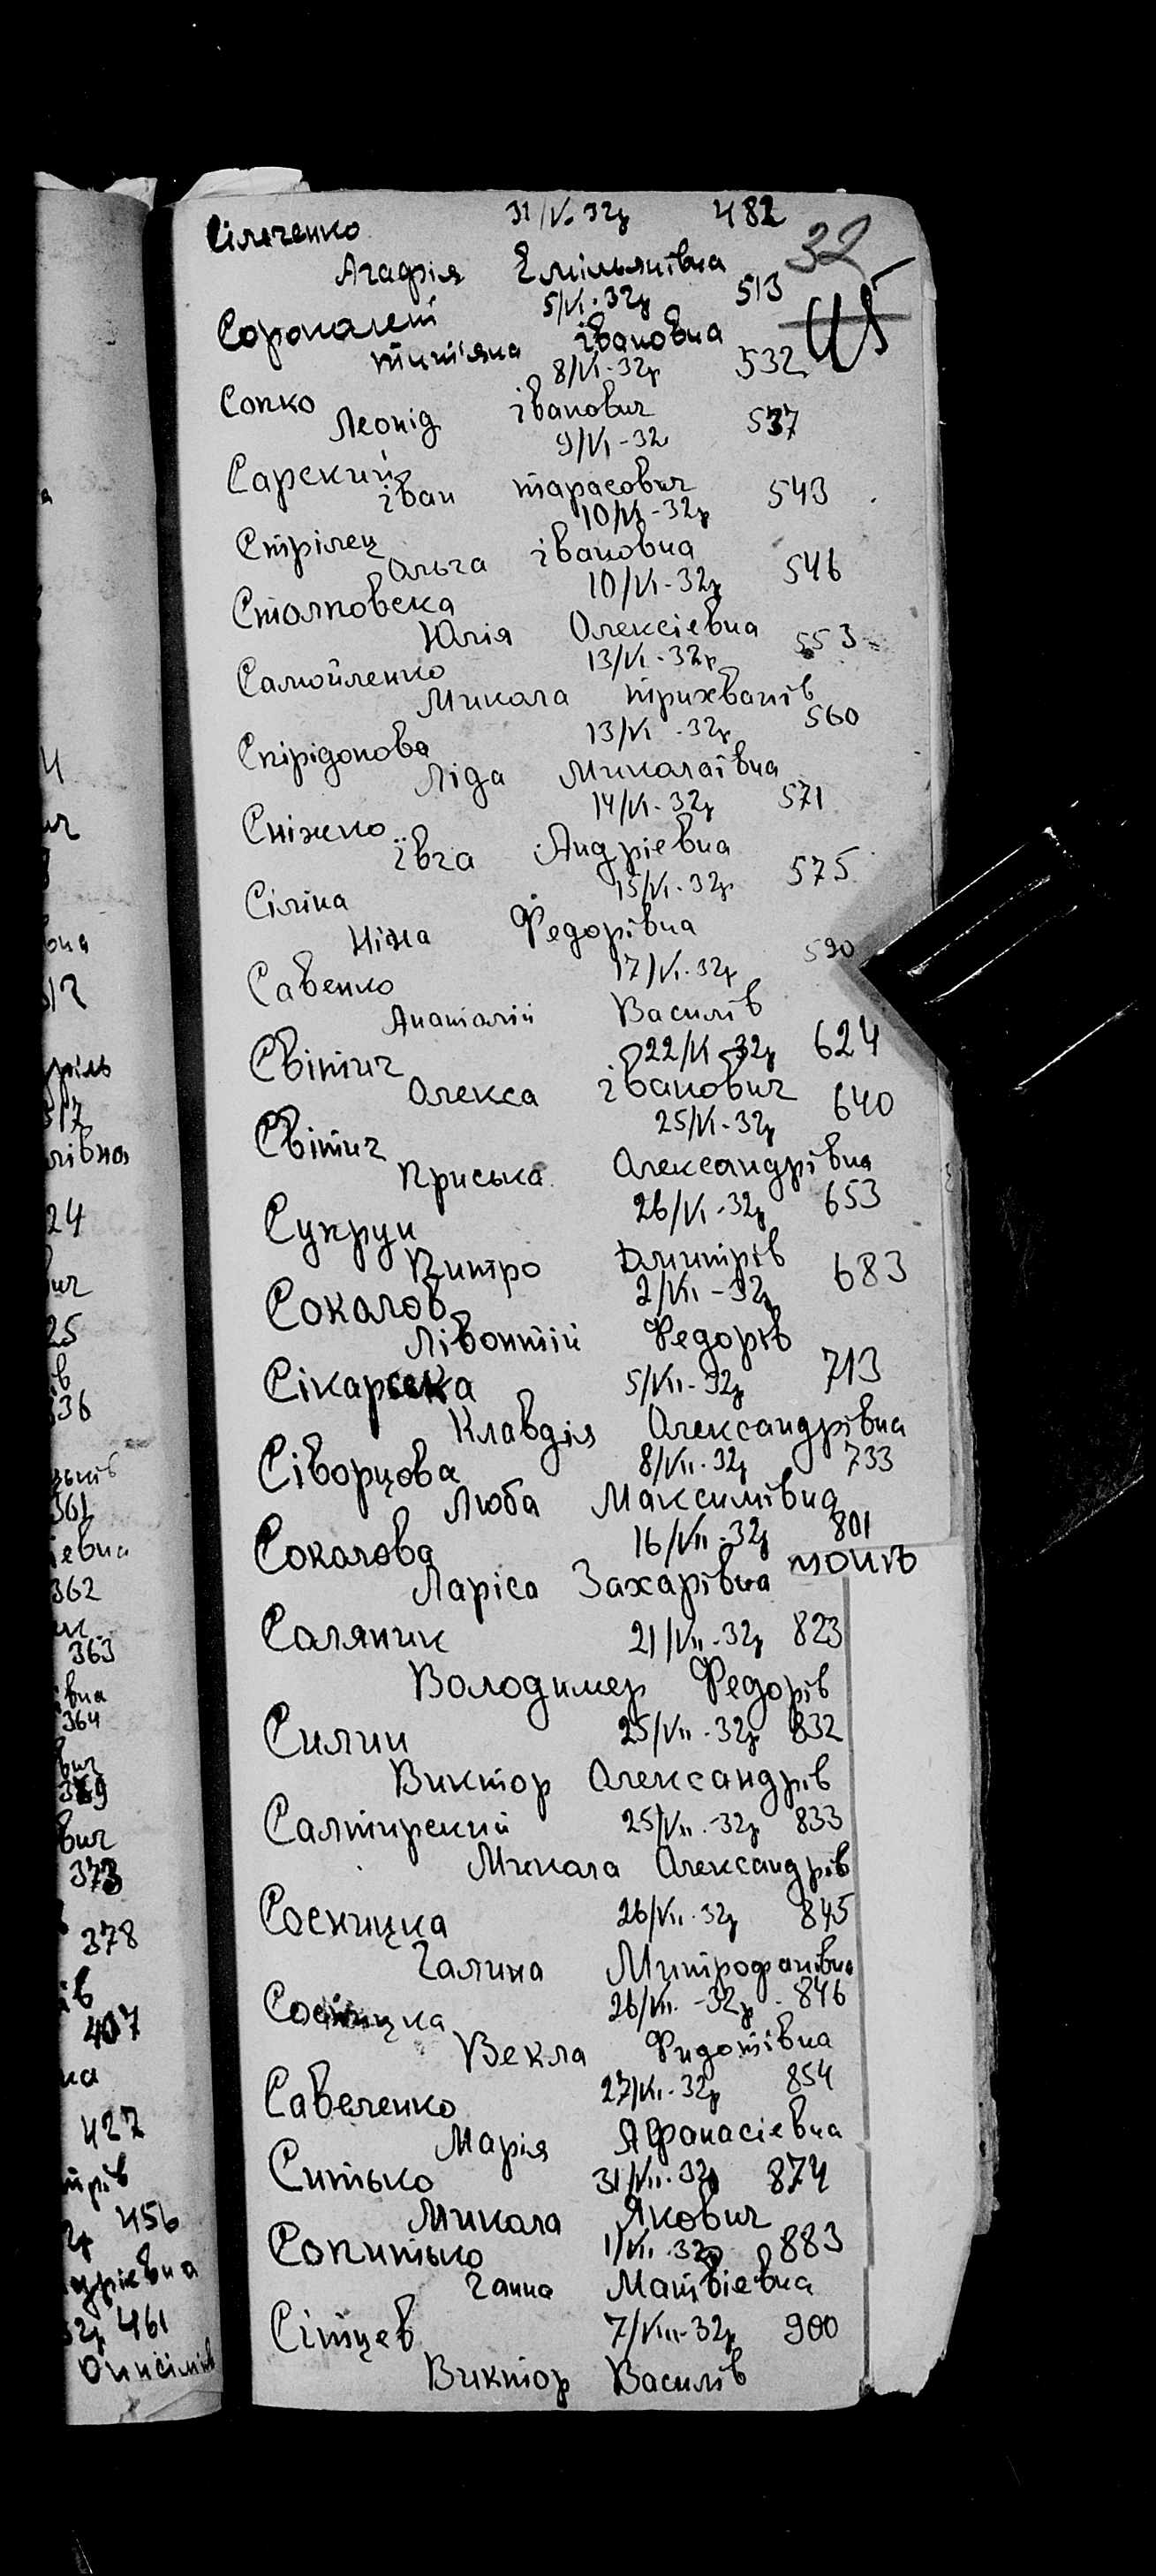 Сілеченко 31/V. 32р 482
32
Агафія Емільянівна
115
Сорокалет 5/VI-32р 513
титіяна івановна
Сопко 8/VI-32р 532
Леонід іванович
Сарский 9/VI-32 537
іван тарасович
Стрілец 10/VI-32р 543
Ольга івановна
Столповска 10/VI-32р 546
Юлія Олексієвна
Самойленко 13/VI-32р 553
Микола трихванів
Спірідонова 13/VI-32р 560
Ліда Миколаївна
Сніжко 14/VI-32р 571
івга Андрієвна
Сіліна 15/VI-32р 575
Ніна Федорівна
Савенко 17/VI-32р 590
Анатолій Василів
Світич 22/VI-32р 624
Олекса івановіч
Світич 25/VI-32р 640
Приська Олександрівна
Сукрун 26/VI-32р 653
Питро Дмитрів
Соколов 2/VII-32р 683
Лівонтій Федорів
Сікарска 5/VII-32р 713
Клавдія Олександрівна
Сіворцова 8/VII-32р 733
Люба Максимівна
Соколова 16/VII-32р 801
Ларіса Захарівна
Саляник 21/VII-32р 823
Володимер Федорів
Силин 25/VII-32р 832
Виктор Олександрів
Салтирский 25/VII-32р 833
Микола Олександрів
Сосницка 26/VII-32р 845
Галина Митрофанівна
26/VII-32р 846
Векла Фидотівна
Савеленко 27/VII-32р 854
Марія Афанасієвна
Ситько 31/VII-32р 874
Микола Якович
Сопитько 1/VII-32р 883
Ганна Матвієвна
Сітцев 7/VIII-32р 900
Виктор Василів